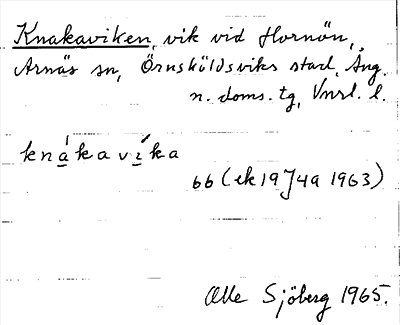 Knakaviken, vik vid Hornön,
Arnäs sn, Örnsköldsviks stad, Ång.
n. doms. tg, Vnrl. l.
knákavíka
66 (ek 19 J4a 1963)
Olle Sjöberg 1965.